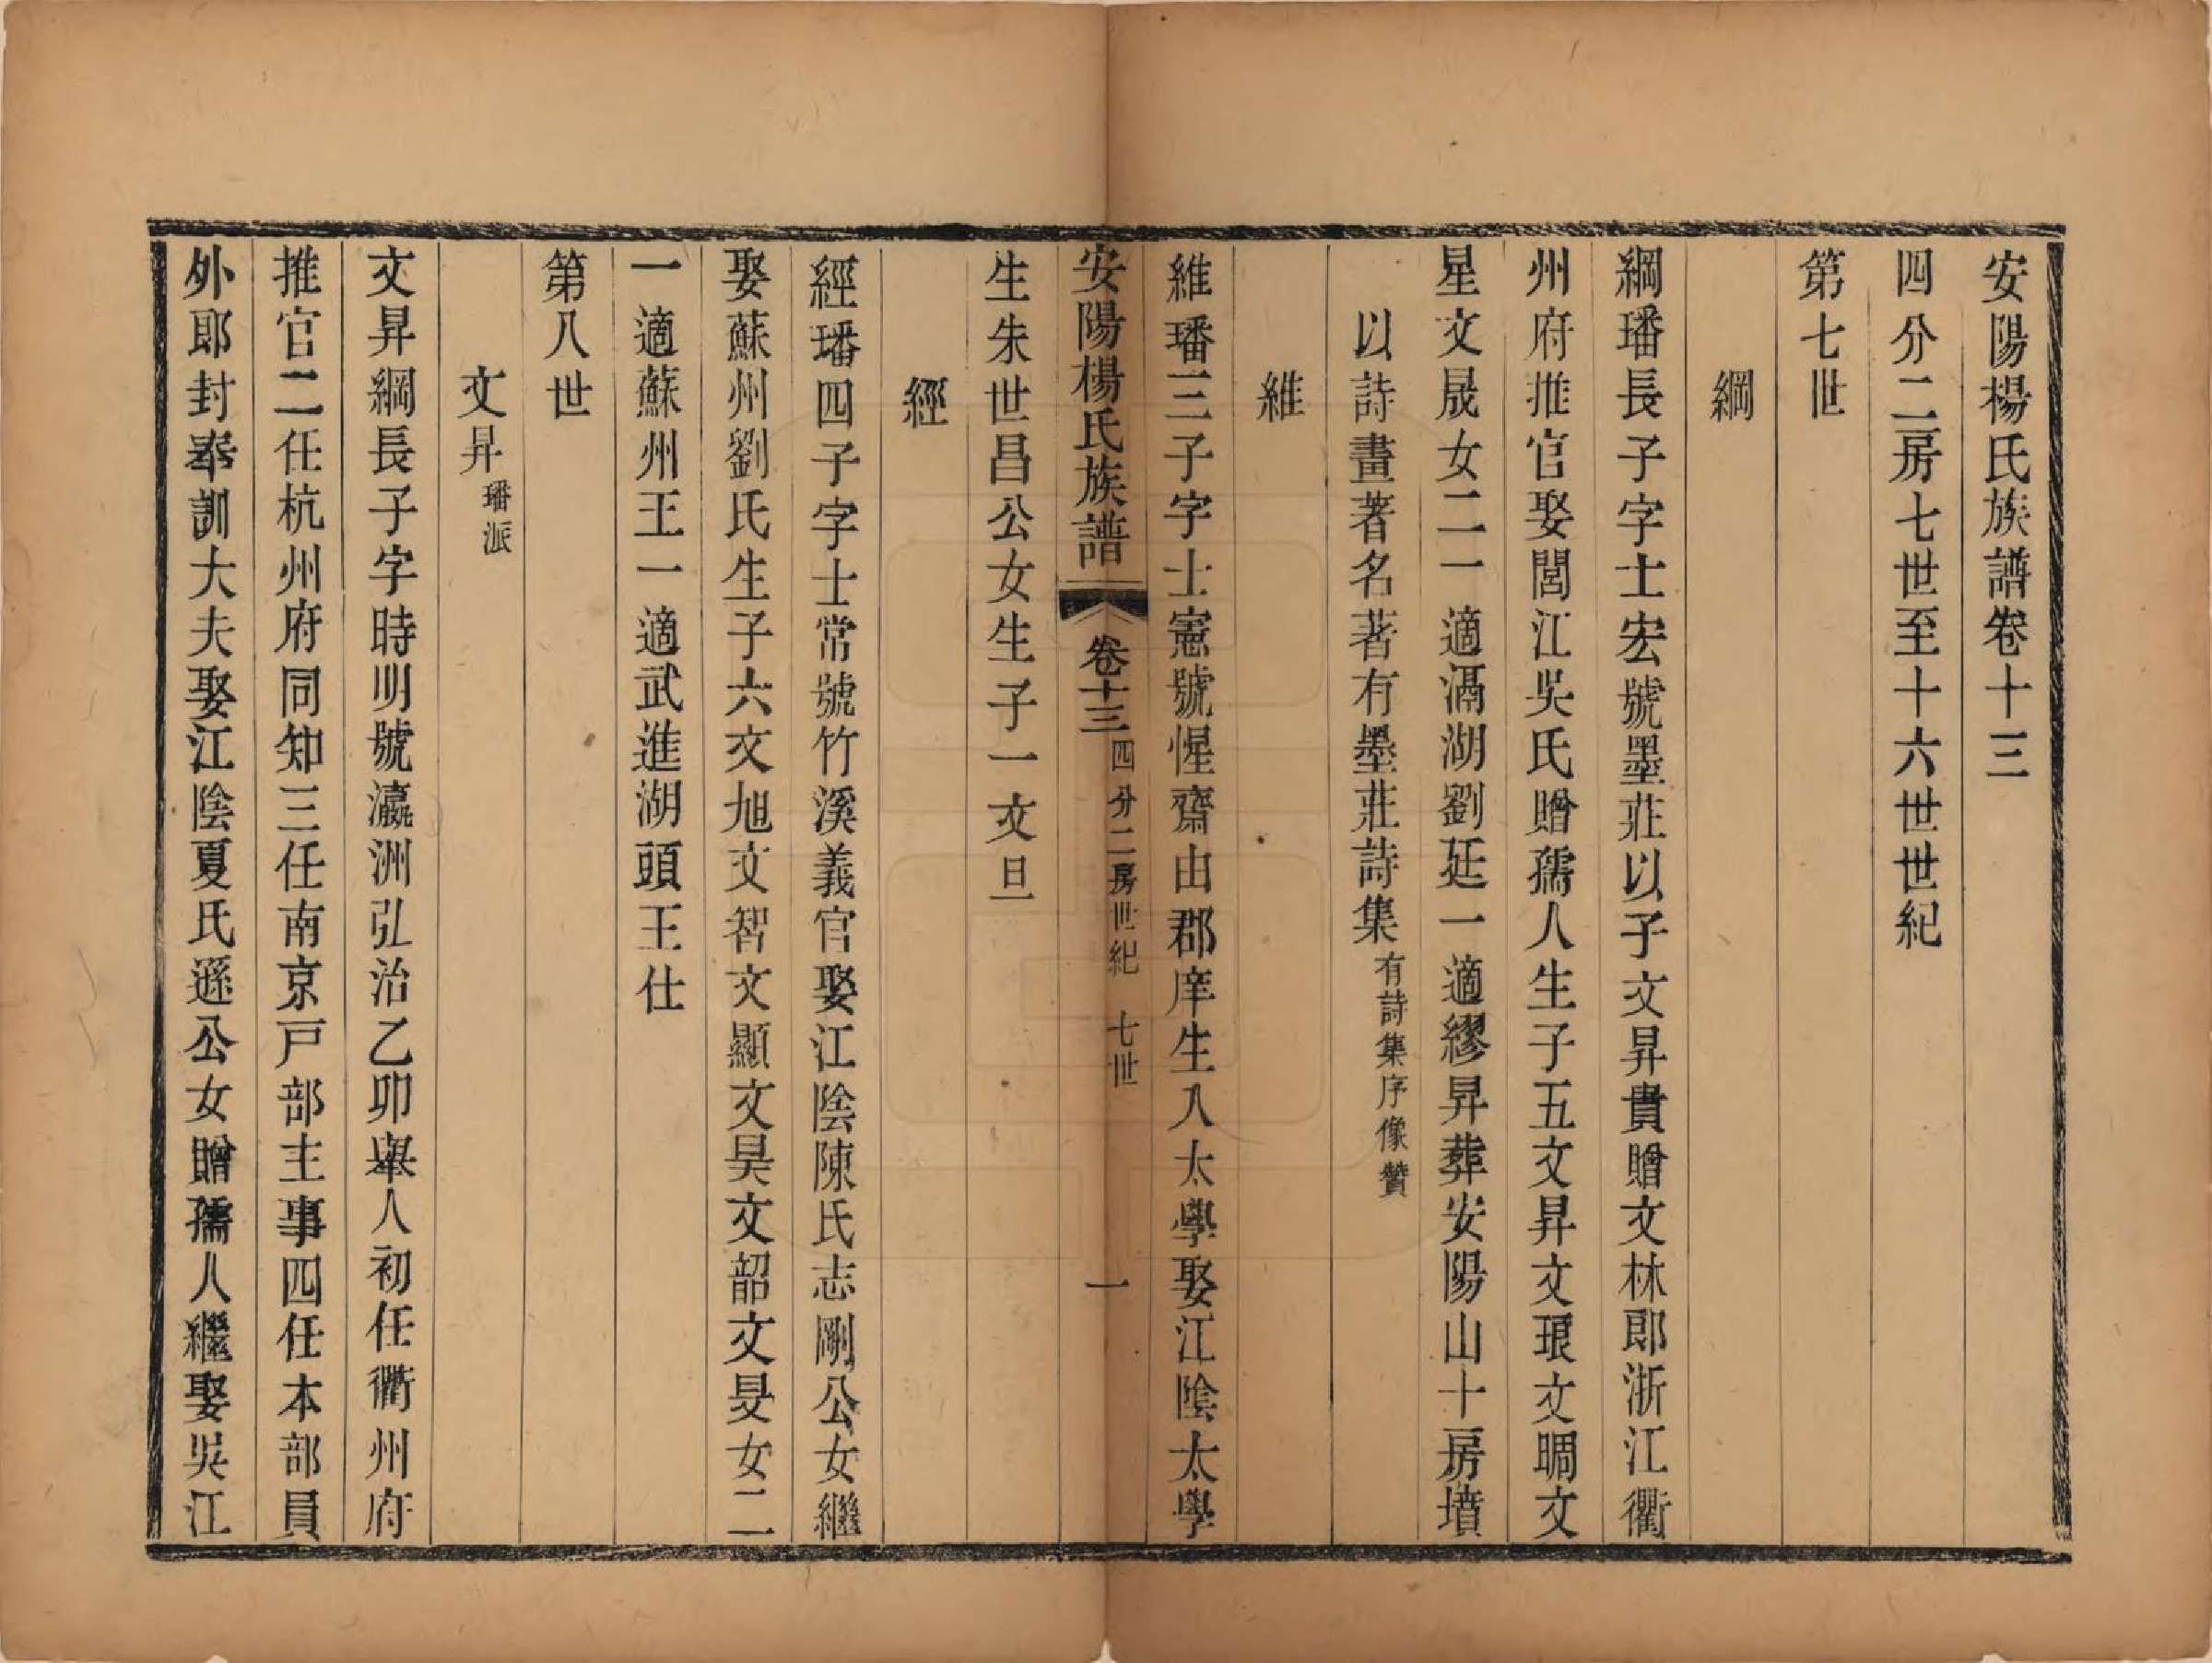 安陽楊氏族譜卷十三
四分二房七世至十六世世紀
第七世
綱
綱璠長子字士宏號墨莊以子文昇貴贈文林郎浙江衢
州府推官娶閶江吳氏贈孺人生子五文昇文琅文晭文
星文晟女二一適滆湖劉廷一適繆昇葬安陽山十房墳
以詩畫著名著有墨莊詩集有詩集序像贊
維
維璠三子字士憲號惺齋由郡庠生入太學娶江陰太學
安陽楊氏族譜 卷十三 四分二房世紀 七世 一
生朱世昌公女生子一文旦
經
經璠四子字士常號竹溪義官娶江陰陳氏志剛公女繼
娶蘇州劉氏生子六文旭文智文顯文昊文韶文旻女二
一適蘇州王一適武進湖頭王仕
第八世
文昇璠派
文昇綱長子字時明號瀛洲弘治乙卯舉人初任衢州府
推官二任杭州府同知三任南京戶部主事四任本部員
外郎封奉訓大夫娶江陰夏氏遜公女贈孺人繼娶吳江